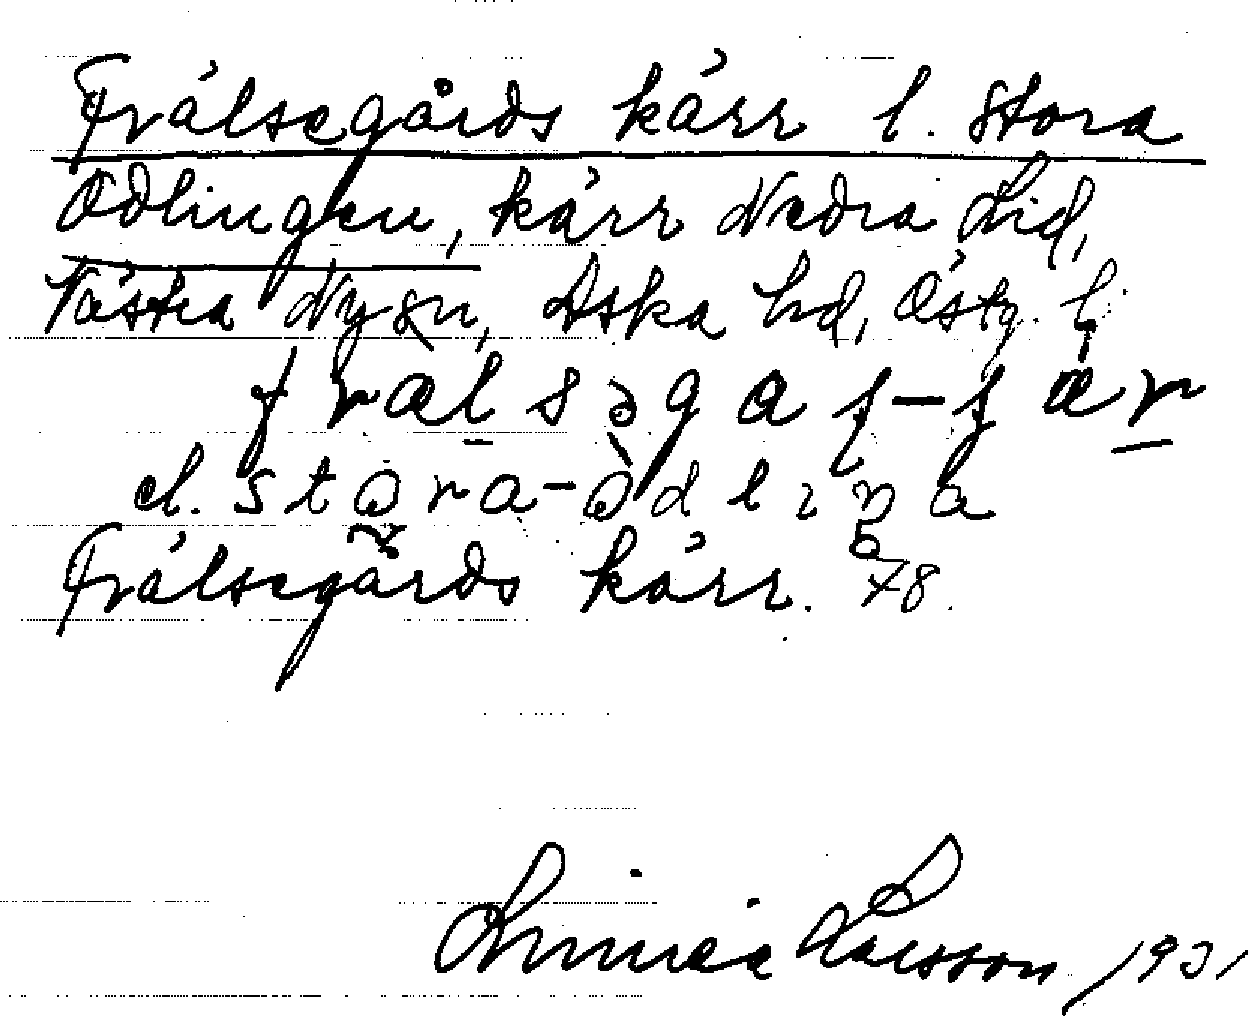 Frälsegårds kärr l. Stora
Odlingen, kärr Nedra Lid,
Västra Ny sn, Aska hd, Östg. l.
frælsəgaʂ-ʂær
el. stora-odlıŋa
Frälsegårds kärr. 78.
Linnea Larsson 1931